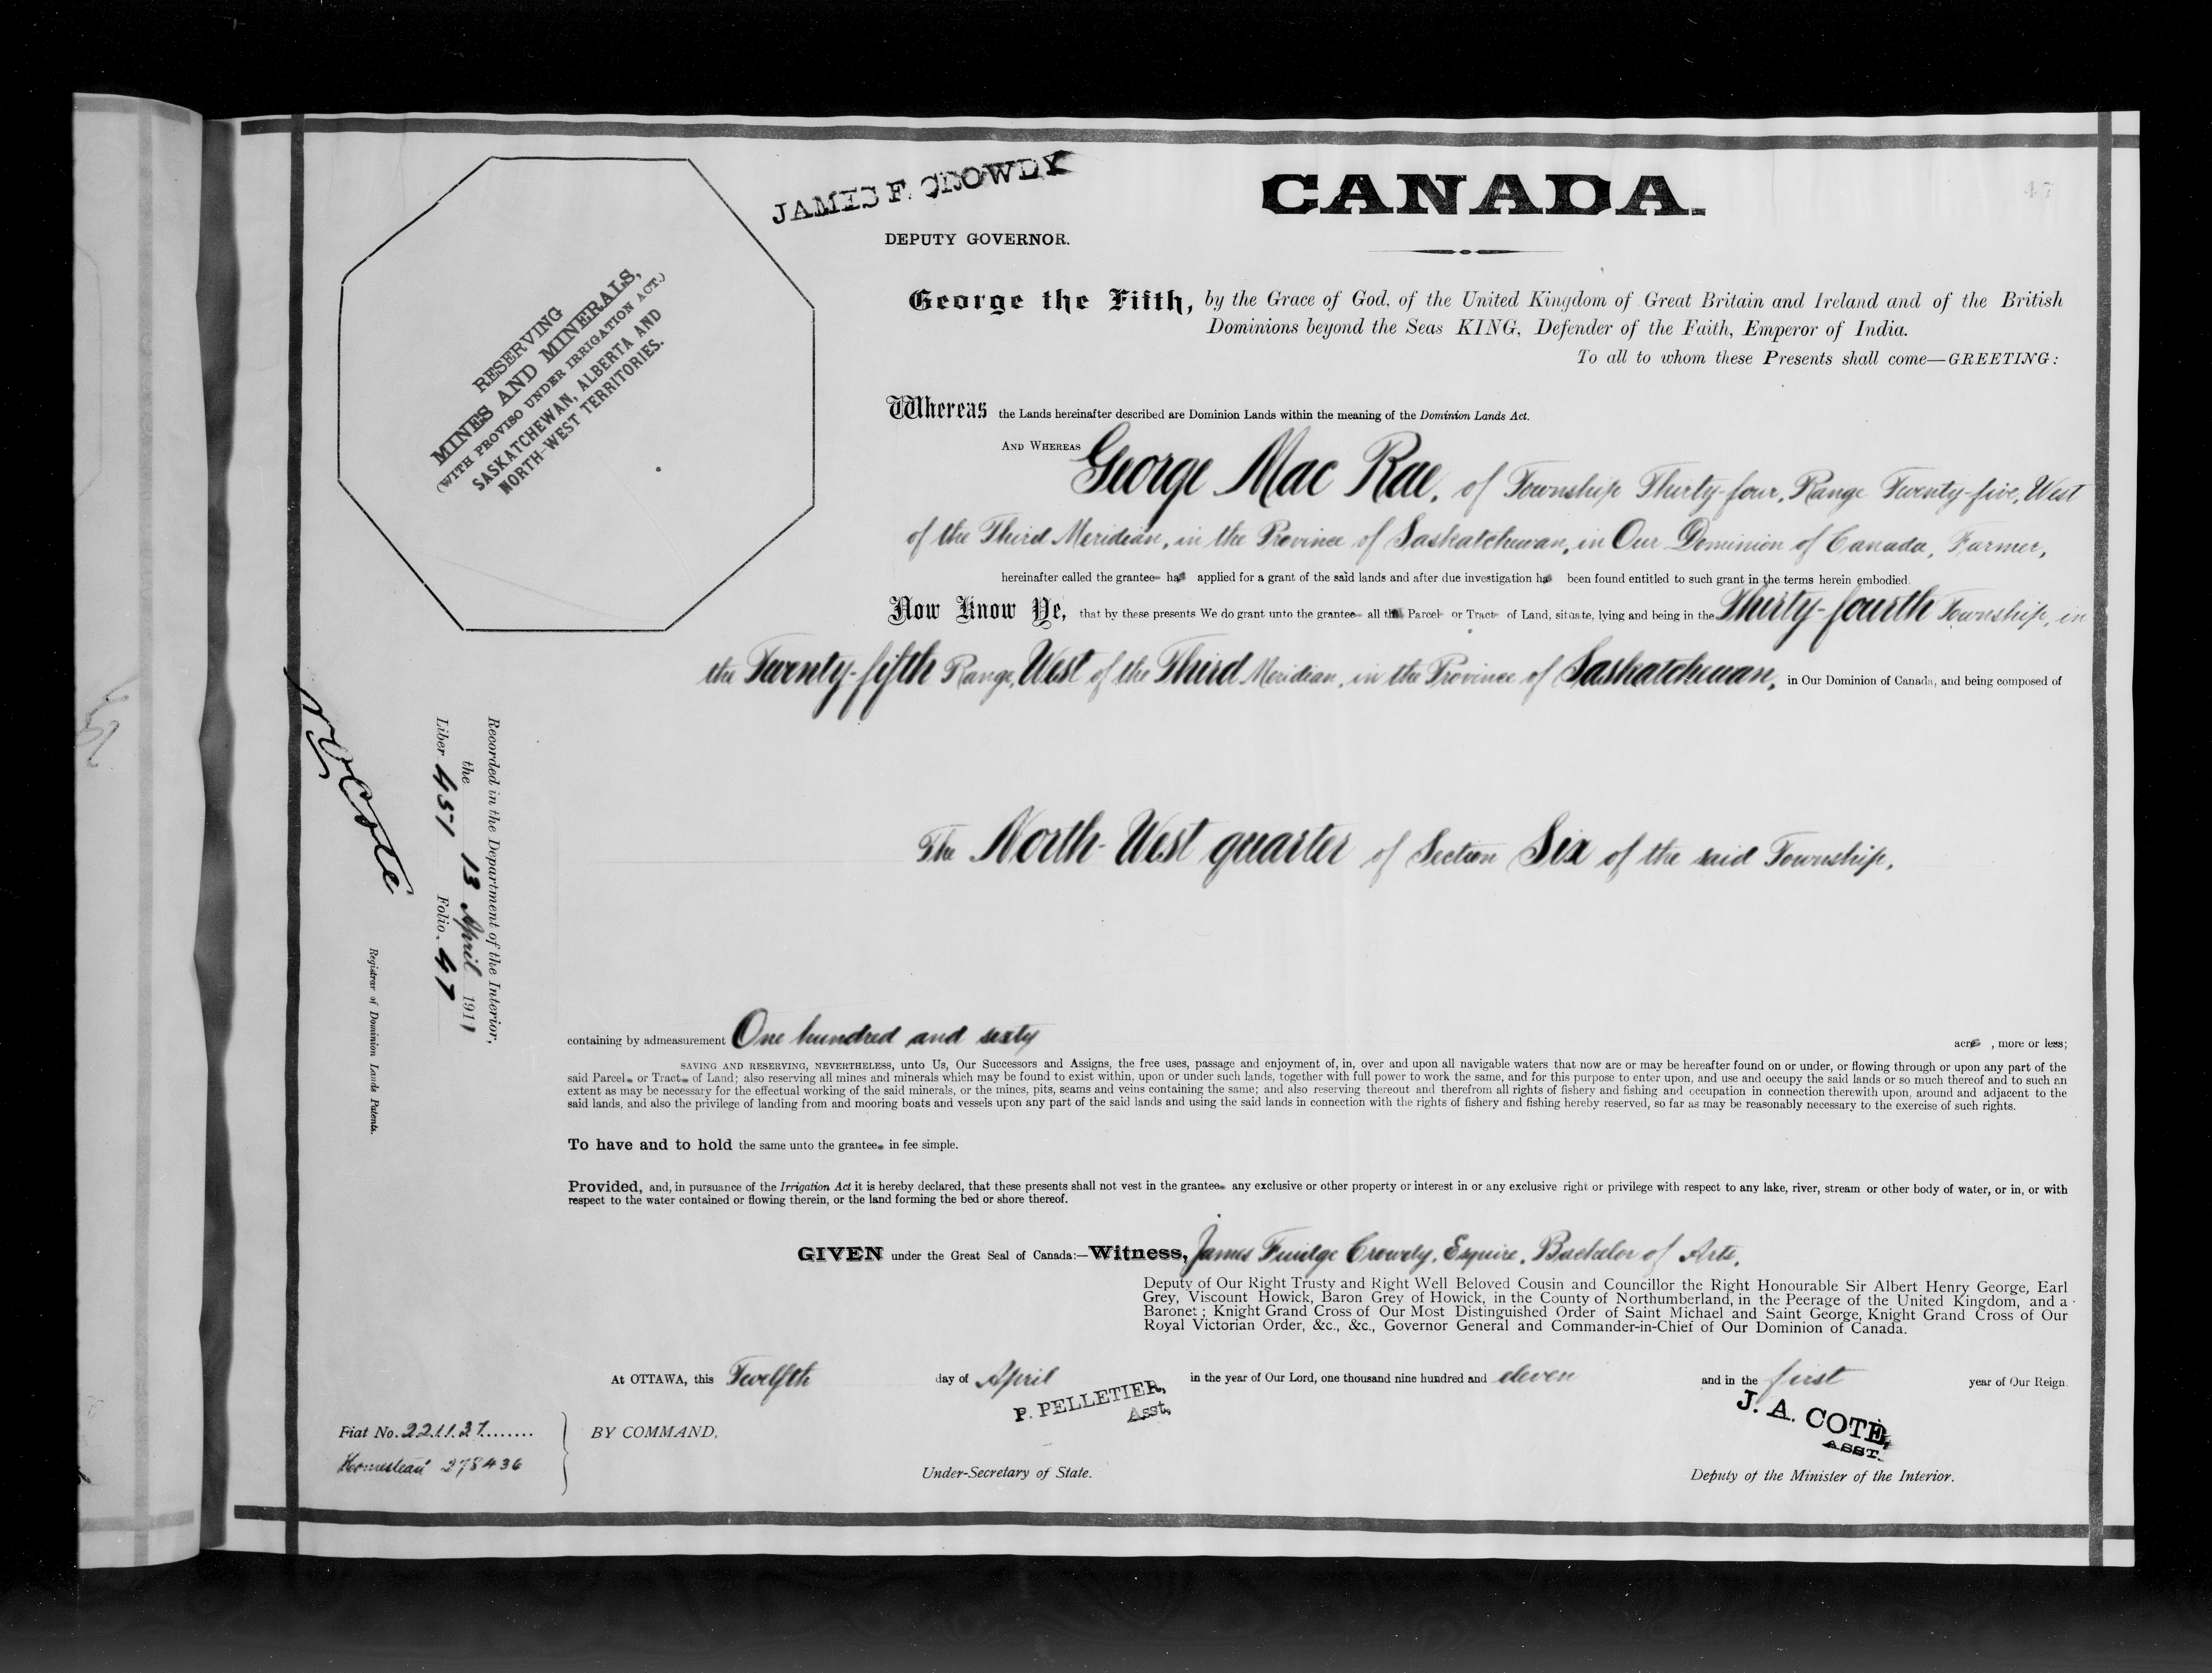 47
JAMES F. CROWDY
DEPUTY GOVERNOR.
CANADA.
RESERVING
MINES AND MINERALS,
(WITH PROVISO UNDER IRRIGATION ACT.)
SASKATCHEWAN, ALBERTA AND
NORTH-WEST TERRITORIES.
George the Fifth, by the Grace of God, of the United Kingdom of Great Britain and Ireland and of the British
Dominions beyond the Seas KING, Defender of the Faith, Emperor of India.
To all to whom these Presents shall come—GREETING:
Whereas the Lands hereinafter described are Dominion Lands within the meaning of the Dominion Lands Act.
AND WHEREAS George Mac Rae, of Township Thirty-four, Range Twenty-five, West
of the Third Meridian, in the Province of Saskatchewan, in Our Dominion of Canada, Farmer,
hereinafter called the grantee has applied for a grant of the said lands and after due investigation has been found entitled to such grant in the terms herein embodied.
Now Know Ye, that by these presents We do grant unto the grantee all that Parcel or Tract of Land, situate, lying and being in the Thirty-fourth Township, in
the Twenty-fifth Range, West of the Third Meridian, in the Province of Saskatchewan, in Our Dominion of Canada, and being composed of
The North-West quarter of Section Six of the said Township,
containing by admeasurement One hundred and sixty acres, more or less;
SAVING AND RESERVING, NEVERTHELESS, unto Us, Our Successors and Assigns, the free uses, passage and enjoyment of, in, over and upon all navigable waters that now are or may be hereafter found on or under, or flowing through or upon any part of the
said Parcel or Tract of Land; also reserving all mines and minerals which may be found to exist within, upon or under such lands, together with full power to work the same, and for this purpose to enter upon, and use and occupy the said lands or so much thereof and to such an
extent as may be necessary for the effectual working of the said minerals, or the mines, pits, seams and veins containing the same; and also reserving thereout and therefrom all rights of fishery and fishing and occupation in connection therewith upon, around and adjacent to the
said lands, and also the privilege of landing from and mooring boats and vessels upon any part of the said lands and using the said lands in connection with the rights of fishery and fishing hereby reserved, so far as may be reasonably necessary to the exercise of such rights.
To have and to hold the same unto the grantee in fee simple.
Provided, and, in pursuance of the Irrigation Act it is hereby declared, that these presents shall not vest in the grantee any exclusive or other property or interest in or any exclusive right or privilege with respect to any lake, river, stream or other body of water, or in, or with
respect to the water contained or flowing therein, or the land forming the bed or shore thereof.
GIVEN under the Great Seal of Canada:—Witness, James Crowdy, Esquire, Bachelor of Arts,
Deputy of Our Right Trusty and Right Well Beloved Cousin and Councillor the Right Honourable Sir Albert Henry George, Earl
Grey, Viscount Howick, Baron Grey of Howick, in the County of Northumberland, in the Peerage of the United Kingdom, and a
Baronet; Knight Grand Cross of Our Most Distinguished Order of Saint Michael and Saint George, Knight Grand Cross of Our
Royal Victorian Order, &c., &c., Governor General and Commander-in-Chief of Our Dominion of Canada.
At OTTAWA, this Twelfth day of April in the year of Our Lord, one thousand nine hundred and eleven and in the first year of Our Reign.
P. PELLETIER,
Asst,
J. A. COTE,
ASST.
Fiat No. 221137
Homestead 278436
BY COMMAND,
Under-Secretary of State.
Deputy of the Minister of the Interior.
Recorded in the Department of the Interior,
the 13 April 1911
Liber 451 Folio 47
N O Cote
Registrar of Dominion Lands Patents.